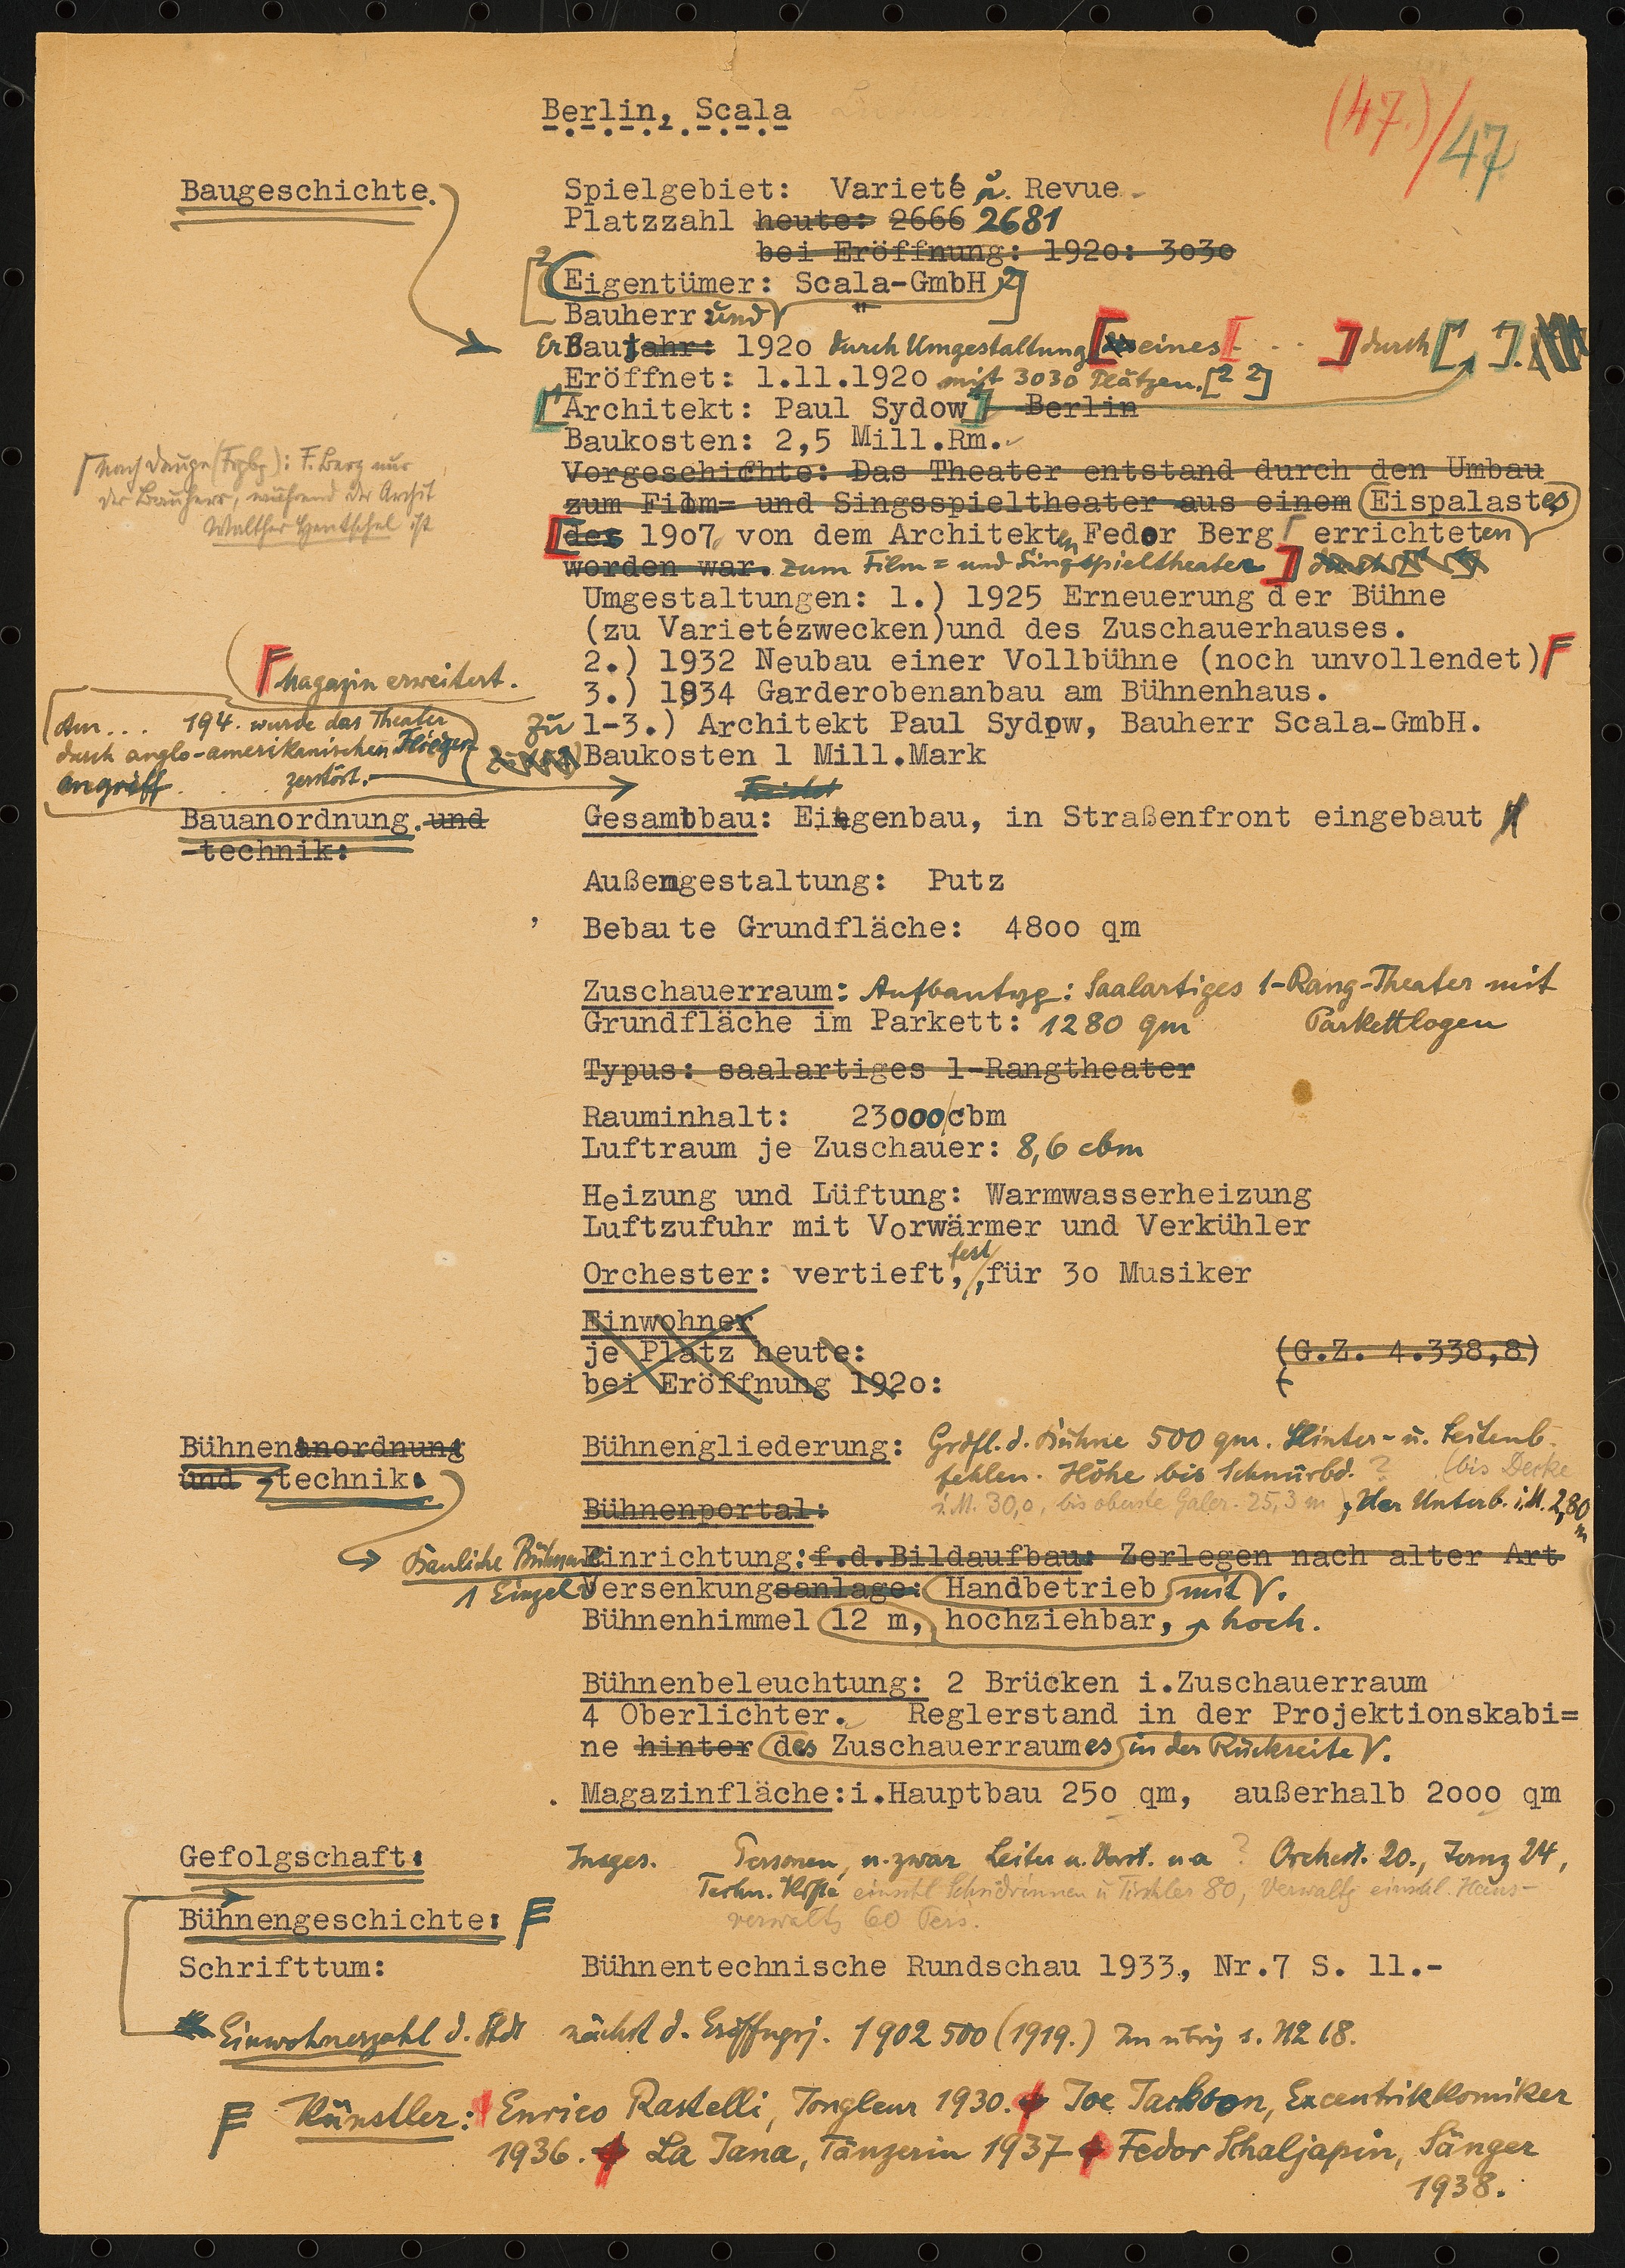 Berlin, Scala
(47.)/47
Baugeschichte.
Spielgebiet: Varieté u. Revue
Platzzahl heute: 2666 2681
bei Eröffnung: 1920: 3030
Eigentümer: Scala-GmbH
Bauherr und
Erbaut jahr: 1920 durch Umgestaltung eines [ . . . ] durch [1 1].
Eröffnet: 1.11.1920 mit 3030 Plätzen. [2 2]
Architekt: Paul Sydow Berlin
Baukosten: 2,5 Mill.Rm.
Vorgeschichte: Das Theater entstand durch den Umbau
zum Film= und Singsspieltheater aus einem Eispalastes
des 1907 von dem Architekten Fedor Berg errichteten
worden war. zum Film= und Singspieltheater
F. Berg nur
der Bauherr, während der Archit
Walther Hentschel ist
Umgestaltungen: 1.) 1925 Erneuerung der Bühne
(zu Varietézwecken)und des Zuschauerhauses.
2.) 1932 Neubau einer Vollbühne (noch unvollendet)
Magazin erweitert.
3.) 1934 Garderobenanbau am Bühnenhaus.
zu 1-3.) Architekt Paul Sydow, Bauherr Scala-GmbH.
Baukosten 1 Mill.Mark
Am ... 194. wurde das Theater
durch anglo-amerikanischen Flieger
angriff . . . zerstört.
Bauanordnung. und
-technik:
Gesamtbau: Eingenbau, in Straßenfront eingebaut
Außengestaltung: Putz
Bebaute Grundfläche: 4800 qm
Zuschauerraum: Aufbautyp: Saalartiges 1-Rang-Theater mit
Parkettlogen
Grundfläche im Parkett: 1280 qm
Typus: saalartiges 1-Rangtheater
Rauminhalt: 23000 cbm
Luftraum je Zuschauer: 8,6 cbm
Heizung und Lüftung: Warmwasserheizung
Luftzufuhr mit Vorwärmer und Verkühler
Orchester: vertieft, fest, für 30 Musiker
Einwohner
je Platz heute: (G.Z. 4.338,8)
bei Eröffnung 1920: (
Bühnenanordnung
und -technik:
Bühnengliederung: Grdfl. d. Bühne 500 qm. Hinter- u. Seitenb.
fehlen. Höhe bis Schnürbd. ? (bis Decke
i.M. 30,0, bis oberste Galer. 25,3 m), der Unterb. i.M. 2,80 m
Bühnenportal:
Bauliche Bühnen Einrichtung: f.d.Bildaufbau: Zerlegen nach alter Art
1 Einzel Versenkungsanlage: Handbetrieb mit
Bühnenhimmel 12 m, hochziehbar, hoch.
Bühnenbeleuchtung: 2 Brücken i.Zuschauerraum
4 Oberlichter. Reglerstand in der Projektionskabi=
ne hinter des Zuschauerraumes in der Rückseite
Magazinfläche:i.Hauptbau 250 qm, außerhalb 2000 qm
Gefolgschaft:
Insges. Personen, u. zwar Leiter u. Vorst. u a ? Orchest. 20., Tanz 24,
Techn. einschl Schneiderinnen u Tischler 80, Verwaltg einschl. Haus-
verwaltg 60 Pers.
Bühnengeschichte:
Schrifttum: Bühnentechnische Rundschau 1933, Nr.7 S. 11.-
Einwohnerzahl d. Stdt nächst d. Eröffngsj. 1902 500 (1919.) Im übrig s. N2 18.
Künstler: Enrico Rastelli, Jongleur 1930. Joe Jackson, Excentrikkomiker
1936. La Jana, Tänzerin 1937 Fedor Schaljapin, Sänger
1938.